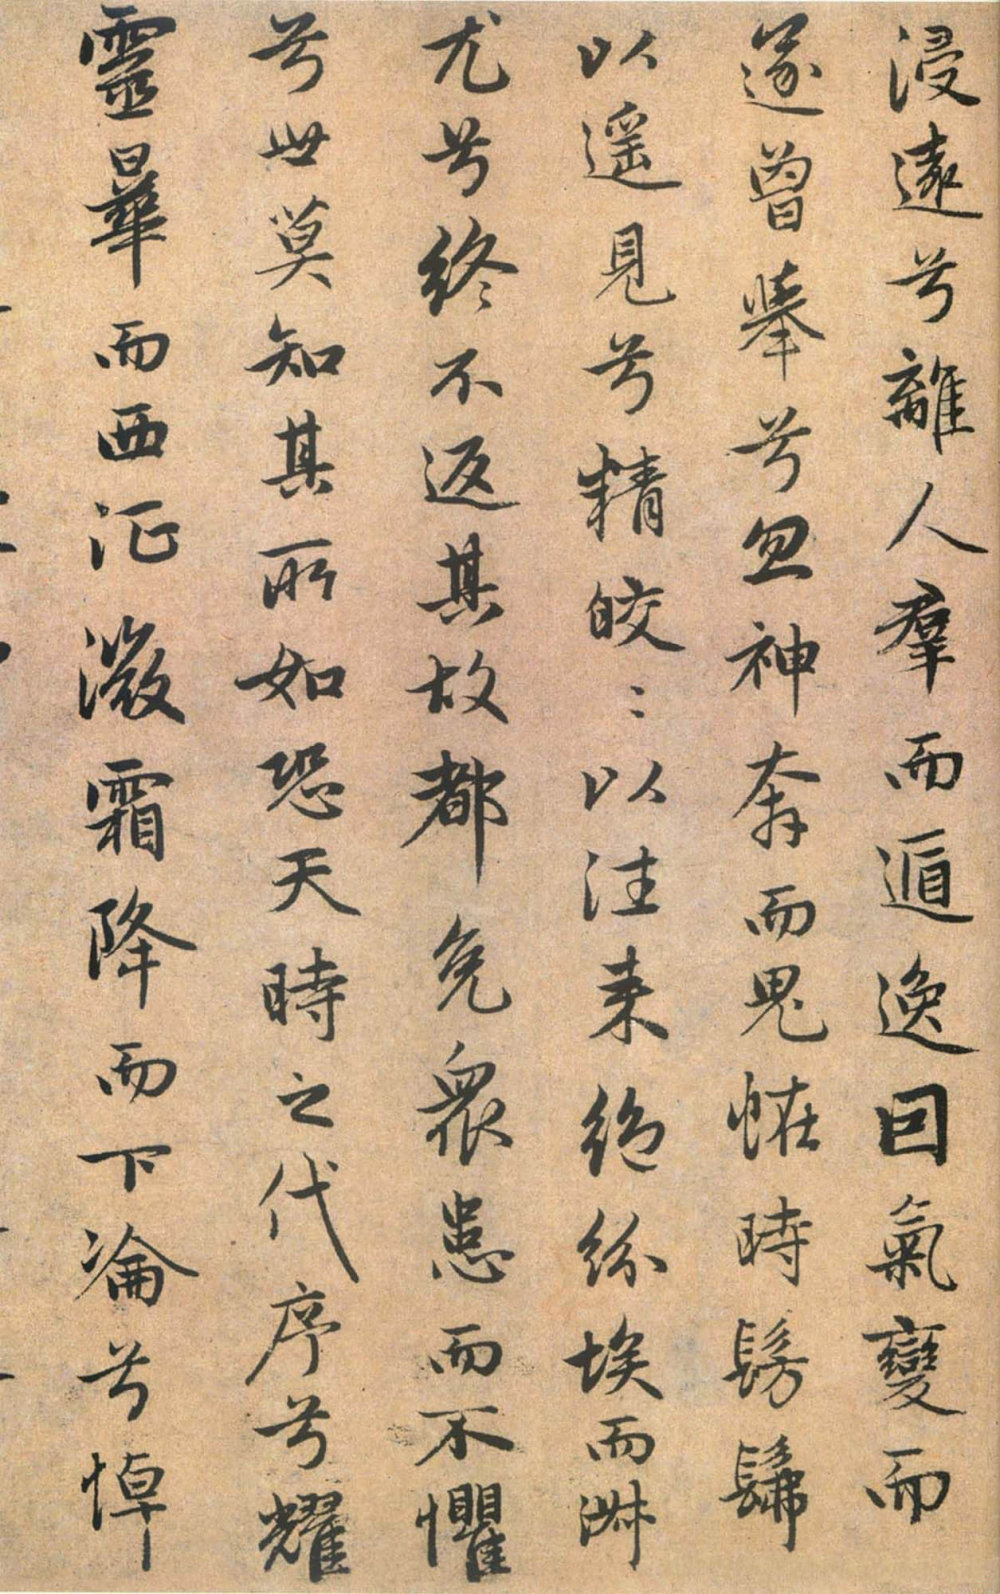 浸遠兮離人羣而遁逸因氣變而
遂曾舉兮忽神奔而鬼恠時髣髴
以遥見兮精皎〻以往来絶紛埃而淋
尤兮終不返其故都免衆患而不懼
兮世莫知其所如恐天時之代序兮耀
靈曅而西征微霜降而下淪兮悼